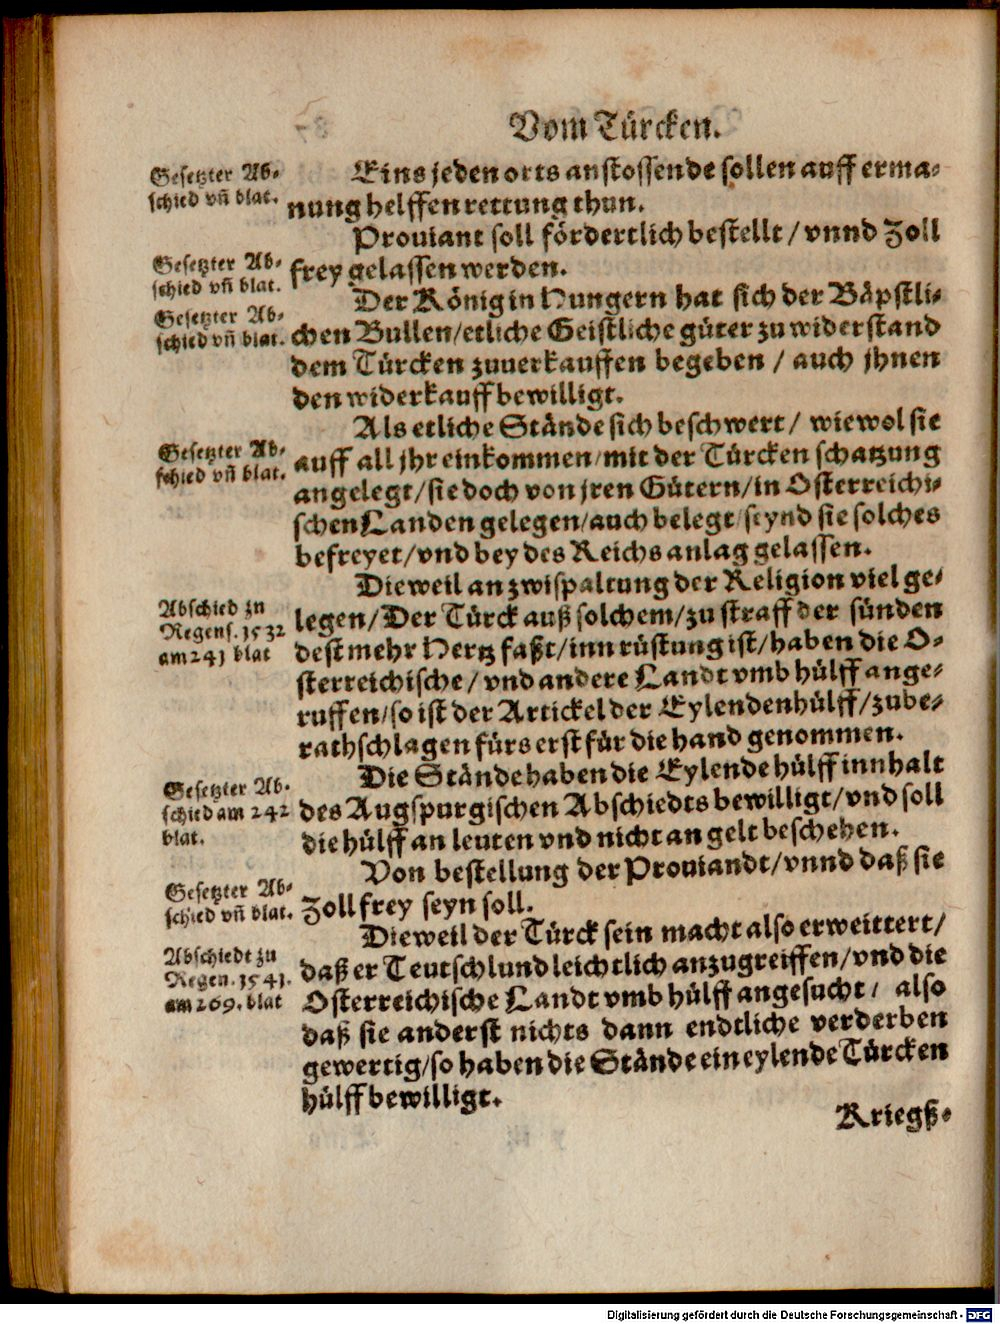 Vom Türcken.
Gesetzter Ab-
schied vñ blat.
Eins jeden orts anstossende sollen auff erma-
nung helffen rettung thun.
Prouiant soll fördertlich bestellt / vnnd Zoll
frey gelassen werden.
Gesetzter Ab-
schied vñ blat.
Der König in Hungern hat sich der Bäpstli-
chen Bullen/etliche Geistliche güter zu widerstand
dem Türcken zuuerkauffen begeben / auch jhnen
den widerkauff bewilligt.
Gesetzter Ab-
schied vñ blat.
Als etliche Stände sich beschwert / wiewol sie
auff all jhr einkommen/mit der Türcken schatzung
angelegt/sie doch von jren Gütern/in Osterreichi-
schen Landen gelegen/auch belegt/seynd sie solches
befreyet/vnd bey des Reichs anlag gelassen.
Gesetzter Ab-
schied vñ blat.
Dieweil an zwispaltung der Religion viel ge-
legen/Der Türck auß solchem/zu straff der sünden
dest mehr Hertz faßt/inn rüstung ist/haben die O-
sterreichische/vnd andere Landt vmb hülff ange-
ruffen/so ist der Artickel der Eylendenhülff/zube-
rathschlagen fürs erst für die hand genommen.
Abschied zu
Regens. 1532
am 241 blat
Die Stände haben die Eylende hülff innhalt
des Augspurgischen Abschiedts bewilligt/vnd soll
die hülff an leuten vnd nicht an gelt beschehen.
Gesetzter Ab-
schied am 242
blat.
Von bestellung der Prouiandt/vnnd daß sie
Zoll frey seyn soll.
Gesetzter Ab-
schied vñ blat.
Dieweil der Türck sein macht also erweittert/
daß er Teutschlund leichtlich anzugreiffen/vnd die
Osterreichische Landt vmb hülff angesucht / also
daß sie anderst nichts dann endtliche verderben
gewertig/so haben die Stände ein eylende Türcken
hülff bewilligt.
Abschiedt zu
Regen. 1541.
am 269. blat
Kriegß-
Digitalisierung gefördert durch die Deutsche Forschungsgemeinschaft - DFG